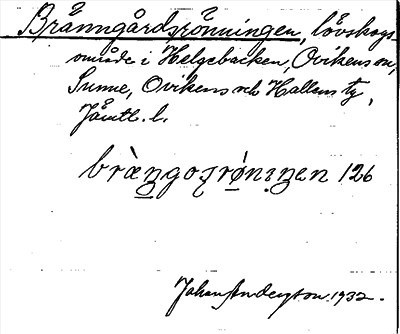 Brånngårdsrönningen, lövskogs-
område i Helgebacken, Ovikens sn,
Sunne, Ovikens och Hallens tg,
Jämtl. l.
126
Johan Anderzon. 1932.